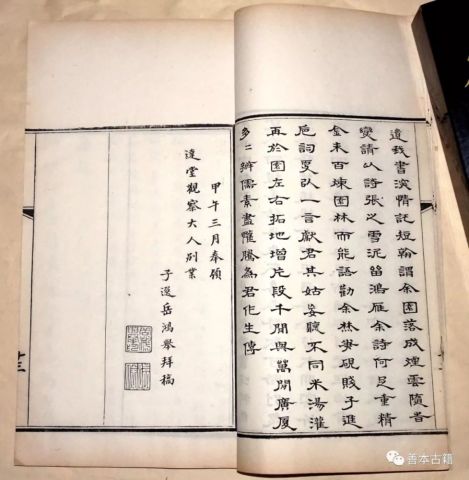 遺我書深情託短翰謂余園落成煙雲隨昏
變請以詩張之雪泥留鴻雁余詩何足重精
金未百煉園林而能語勸余林焚硯賤子進
巵詞更以一言獻君其姑妄聽不同米湯灌
再於園左右拓地增片段千間與萬間廣厦
多二辦儒素盡懽騰為君作生傳
甲午三月奉領
達堂觀察大人別業
子選岳鴻舉拜稿
善本古籍